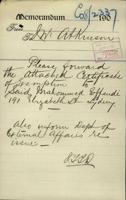 Memorandum
190
From J. W. Atkinson
Please forward
the attached Certificate
of Exemption to
Said Mahommed Effendi
191 Elizabeth St Sydney
also inform Dept of
External Affairs re
issue —